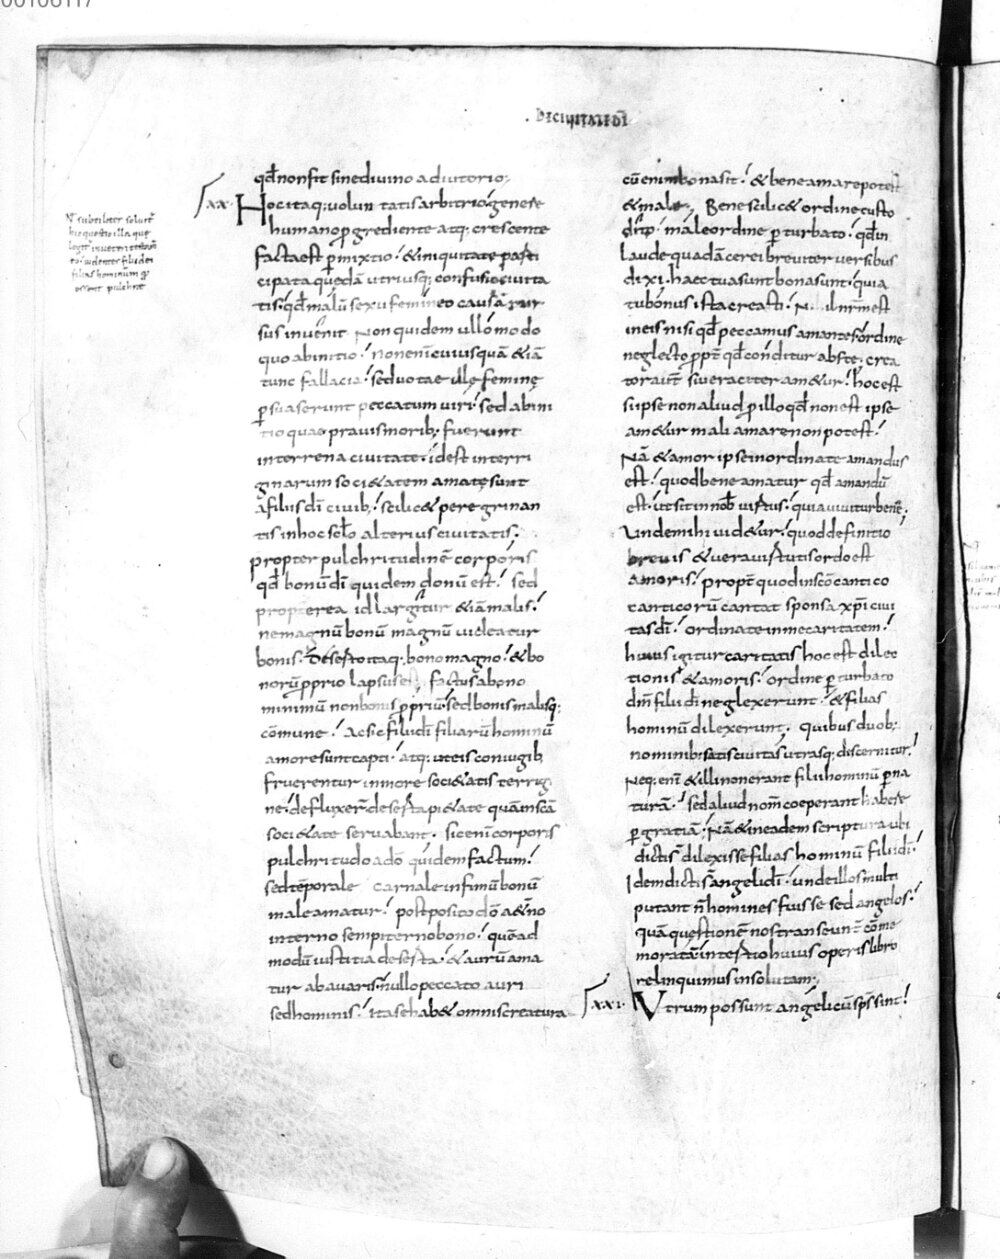 00106117
· DECIUITATE DĪ
N̄ subtiliter soluit̄
hic questio illa que
filias hominum
essent pulchrae
qđ non fit sine diuino adiutorio;
xx· Hoc itaq; uoluntatis arbitrio genere
humano ꝓgrediente atq; crescente
facta est ꝑmixtio! & iniquitate parti
cipata quędā utriusq; confusio ciuita
tis! qđ malū sexu femineo causā rur
sus inuenit Non quidem ullo modo
quo ab initio! non enī cuiusquā &iā
tunc fallacia! seductae illę feminę
ꝑsuaserunt peccatum uiri! sed ab ini
tio quae prauis morib; fuerunt
in terrena ciuitate! idest in terri
ginarum soci&atem amatę sunt
a filiis dī ciuib;! scilic& peregrinan
tis in hoc sclo alterius ciuitatis!
propter pulchritudinē corporis
qđ bonū dī quidem donū est! sed
propterea id largitur &iā malis!
ne magnū bonū magnū uideatur
bonis! Deserto itaq; bono magno! & bo
norū ꝓprio lapsus factus ad bono
minimū non bonis ꝓpriū! sed bonis malisq;
cōmune! Ac sic filii dī filiarū hominū
amore sunt capti! atq; ut eis coniugib;
fruerentur in more soci&atis terrig
nę! defluxer̄ deserta pi&ate quā in scā
soci&ate seruabant· Sic enī corporis
pulchritudo a dō quidem factum!
sed tēporale carnale infimū bonū
male amatur! postposito dō aet̄no
interno sempiterno bono! quēad
modū iustitia deserta! & aurū ama
tur ab auaris! nullo peccato auri
sed hominis! ita se hab& omnis creatura
cū enim bona sit! & bene amari potest
& male; Bene scilic& ordine custo
dito! male ordine ꝑturbato! qđ in
laude quadā cerei breuiter uersibus
dixi· haec tua sunt bona sunt! quia
tu bonus ista creasti! Nil nrm̄ est
in eis nisi qđ peccamus amantes! ordine
neglecto ꝓpt̄ qđ conditur abs te· crea
tor aut̄ si ueraciter am&ur! hoc est
si ipse non aliud ꝓ illo qđ non est ipse
am&ur mali amare non potest!
Nā & amor ipse inordinate amandus
est! quod bene amatur qđ amandū
est! ut sit in nob̄ uirtus! qua uiuitur bene!
Unde mihi uid&ur! quod definitio
breuis & uera uirtutis ordo est
amoris! propt̄ quod in scō cantico
canticorū cantat sponsa xp̄i ciui
tas dī! ordinate in me caritatem!
huius igitur caritatis hoc est dilec
tionis & amoris! ordine ꝑturbato
dm̄ filii dī neglexerunt! & filias
hominū dilexerunt· quibus duob;
nominib; satis ciuitas utraq; discernitur!
Neq; enī & illi non erant filii hominū ꝑ na
turā! sed aliud nom̄ coeperant habere
ꝑ gratiā; Nā & in eadem scriptura ubi
dictis dilexisse filias hominū filii dī!
Idem dicti sī angeli dī! unde illos multi
putant n̄ homines fuisse sed angelos!
quā questionē nos transeunt̄ cōme
moratā in tertio huius operis libro
relinquimus insolutam;
xxi· Vtrum possunt angeli cū sps̄ sint!